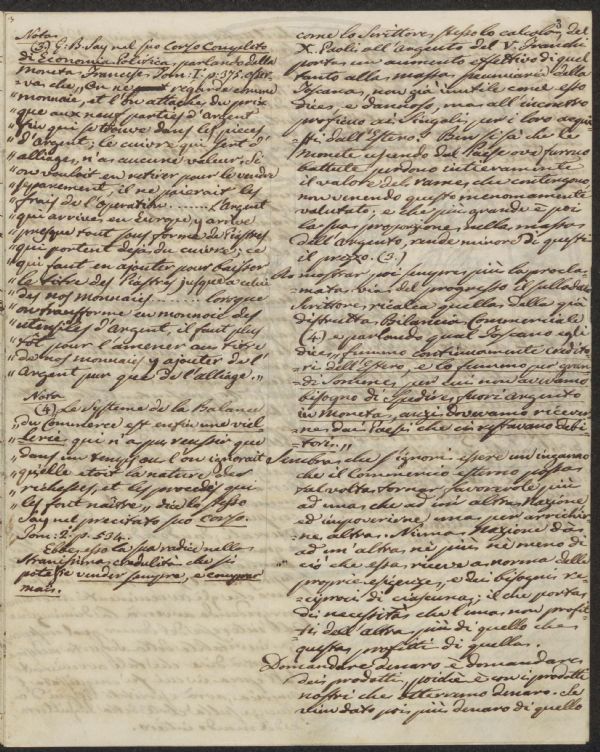 Nota
(3) G. B. Say nel suo Corso Completo
di Economia Politica, parlando della
Moneta Francese Tom: I. p: 375. osser-
va che „ On ne regarde comme
„ monnaie, et l'on attache du prix
„ que aux neuf parties d'Argent
„ fin qui se trouve dans les pièces
„ d'Argent; le cuivre qui sert d'
„ alliage, n'a aucune valeur. Si
„ on voulait en retirer pour le vendre
„ séparément, il ne paierait les
„ frais de l'opération ........ L'argent
„ qui arrive en Europe, y arrive
„ presque tout sous forme de Piastres
„ qui portent déjà du cuivre; ce
„ qui faut en ajouter pour baisser
„ le titre des Piastres jusqu'à celui
„ des nos monnaies ......... lorsque
„ on transforme en monnoie des
„ utensiles d'Argent, il faut plus
„ tôt pour l'amener au titre
„ de nos monnaies y ajouter de l'
„ Argent pur que de l'alliage. „
Nota
(4) Le Systeme de la Balance
„ du Commerce est enfin une viel-
„ lerie qui n'a pu réussir que
„ dans un temps où l'on ignorait
„ quelle etoit la nature des
„ richesses, et les procedés qui
„ les font naître „ dice lo stesso
Say nel precitato suo Corso.
Tom: 2. p. 534.
Ebbe esso la sua radice nella
stranissima credulità che si
potesse vender sempre, e comprar
mai.
3
come lo Scrittore stesso lo calcola, del
X. Paoli all'Argento del V. Franchi
porta un aumento effettivo di quel
tanto alla massa pecuniaria della
Toscana, non già inutile come esso
dice, e dannoso, ma all'incontro
proficuo ai Singoli, per i loro acqui-
sti dall'Estero. Ben si sa che le
Monete uscendo dal Paese ove furono
battute perdono intieramente
il valore del rame, che contengono
non venendo questo menomamente
valutato, e che più grande è poi
la sua proporzione nella massa
dell'Argento, rende minore di questi
il prezzo. (3.)
A mostrar poi sempre più la procla-
mata via del progresso il sullodato
Scrittore, ricalca quella della già
distrutta Bilancia Commerciale
(4) e parlando qual Toscano egli
dice, fummo continuamente credito-
ri dell'Estero, e lo fummo per gran-
di Somme, per cui non avevamo
bisogno di Spedire, fuori argento
in Moneta, anzi dovevamo ricever-
ne dai Paesi che ci restavano debi-
tori. „
Sembra che s'ignori essere un inganno
che il Commercio esterno possa
tal volta tornar favorevole più
ad una, che ad un'altra Nazione
ed impoverirne una per arricchir-
ne altra. Niuna Nazione dà
ad un'altra nè più nè meno di
ciò che essa riceve a norma delle
proprie esigenze, e dei bisogni re-
ciproci di ciascuna; il che porta
di necessità che l'una non profit-
ti dell'altra più di quello che
questa profitti di quella.
Domandare denaro è domandare
dei prodotti, poichè è con i prodotti
nostri che otterremo denaro. Se
vien dato poi più denaro di quello